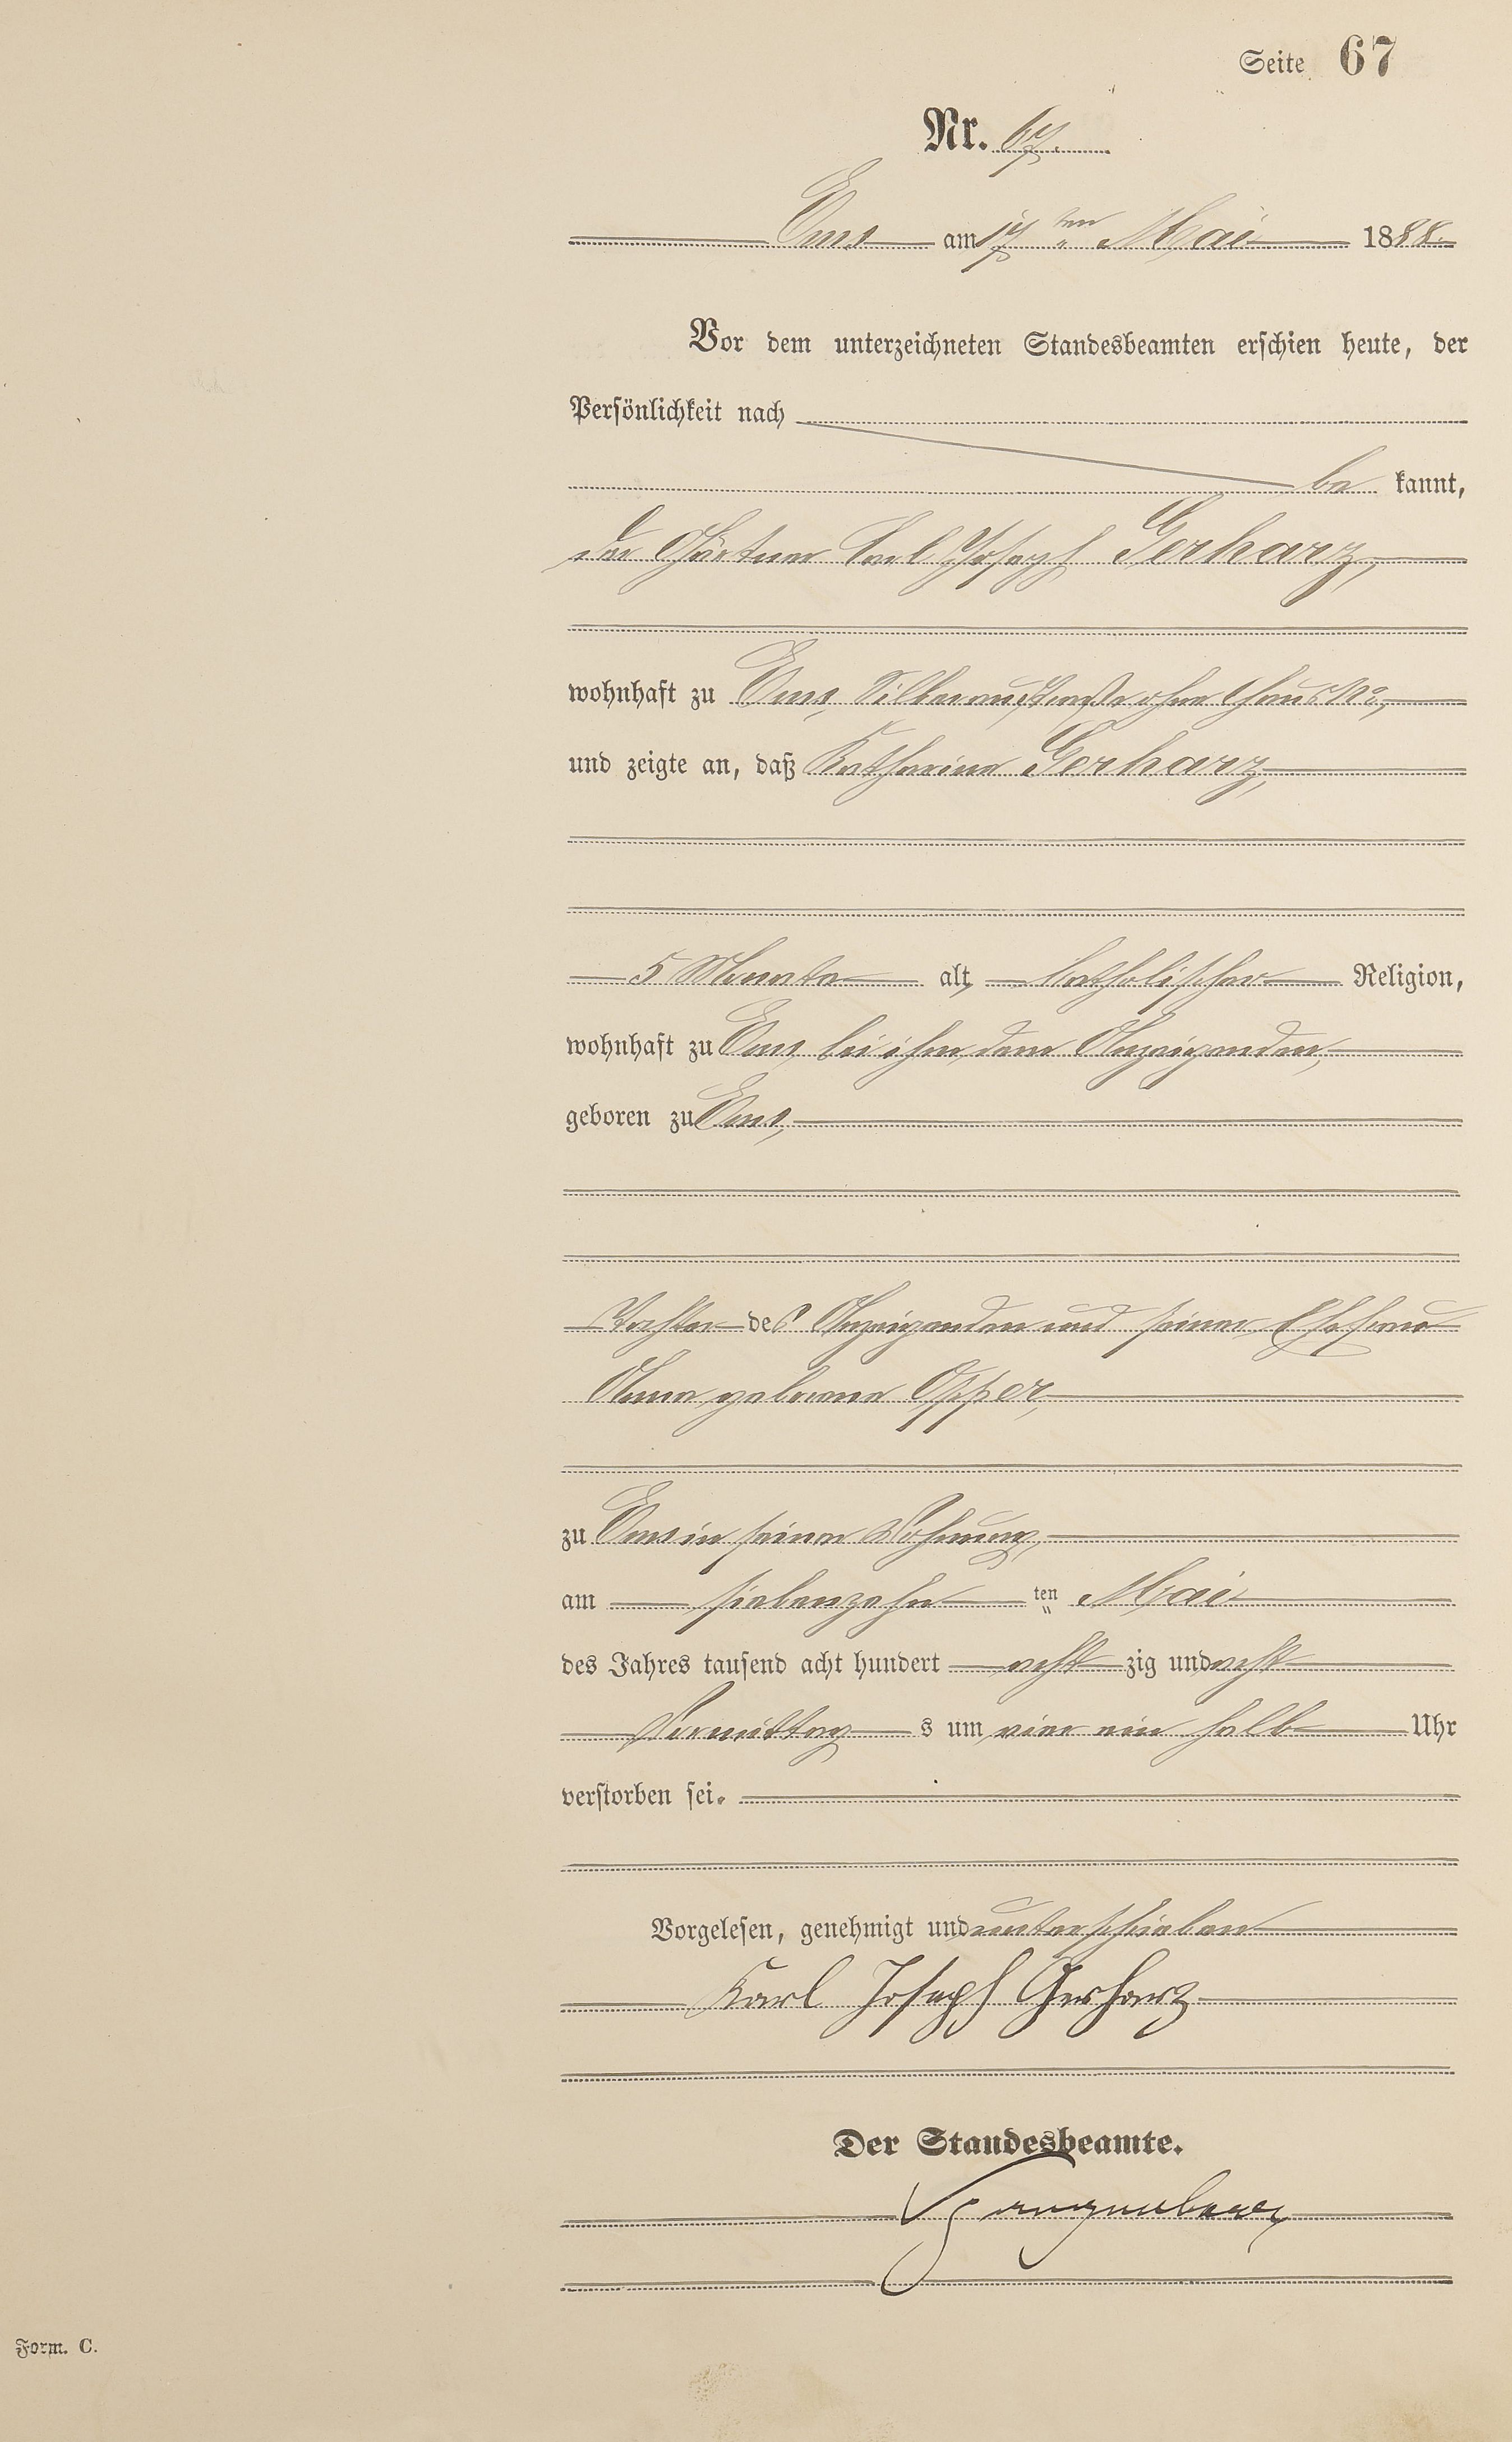 Seite 67
Nr. 67.
Ems am 17 ten Mai 1888.
Vor dem unterzeichneten Standesbeamten erschien heute, der
Persönlichkeit nach
be kannt,
der Gärtner Carl Joseph Gerharz,
wohnhaft zu Ems, Silberaustraße ohne Haus No,
und zeigte an, daß Katharina Gerharz,
5 Monate alt, katholischer Religion,
wohnhaft zu Ems, bei ihm, dem Anzeigenden,
geboren zu Ems,
Tochter des Anzeigenden und seiner Ehefrau
Anna geborene Opper,
zu Ems in seiner Wohnung,
am siebenzehn ten Mai
des Jahres tausend acht hundert acht zig und acht
Vormittag s um vier ein halb Uhr
verstorben sei.
Vorgelesen, genehmigt und unterschrieben
Karl Joseph Gerharz
Der Standesbeamte.
Form. C.